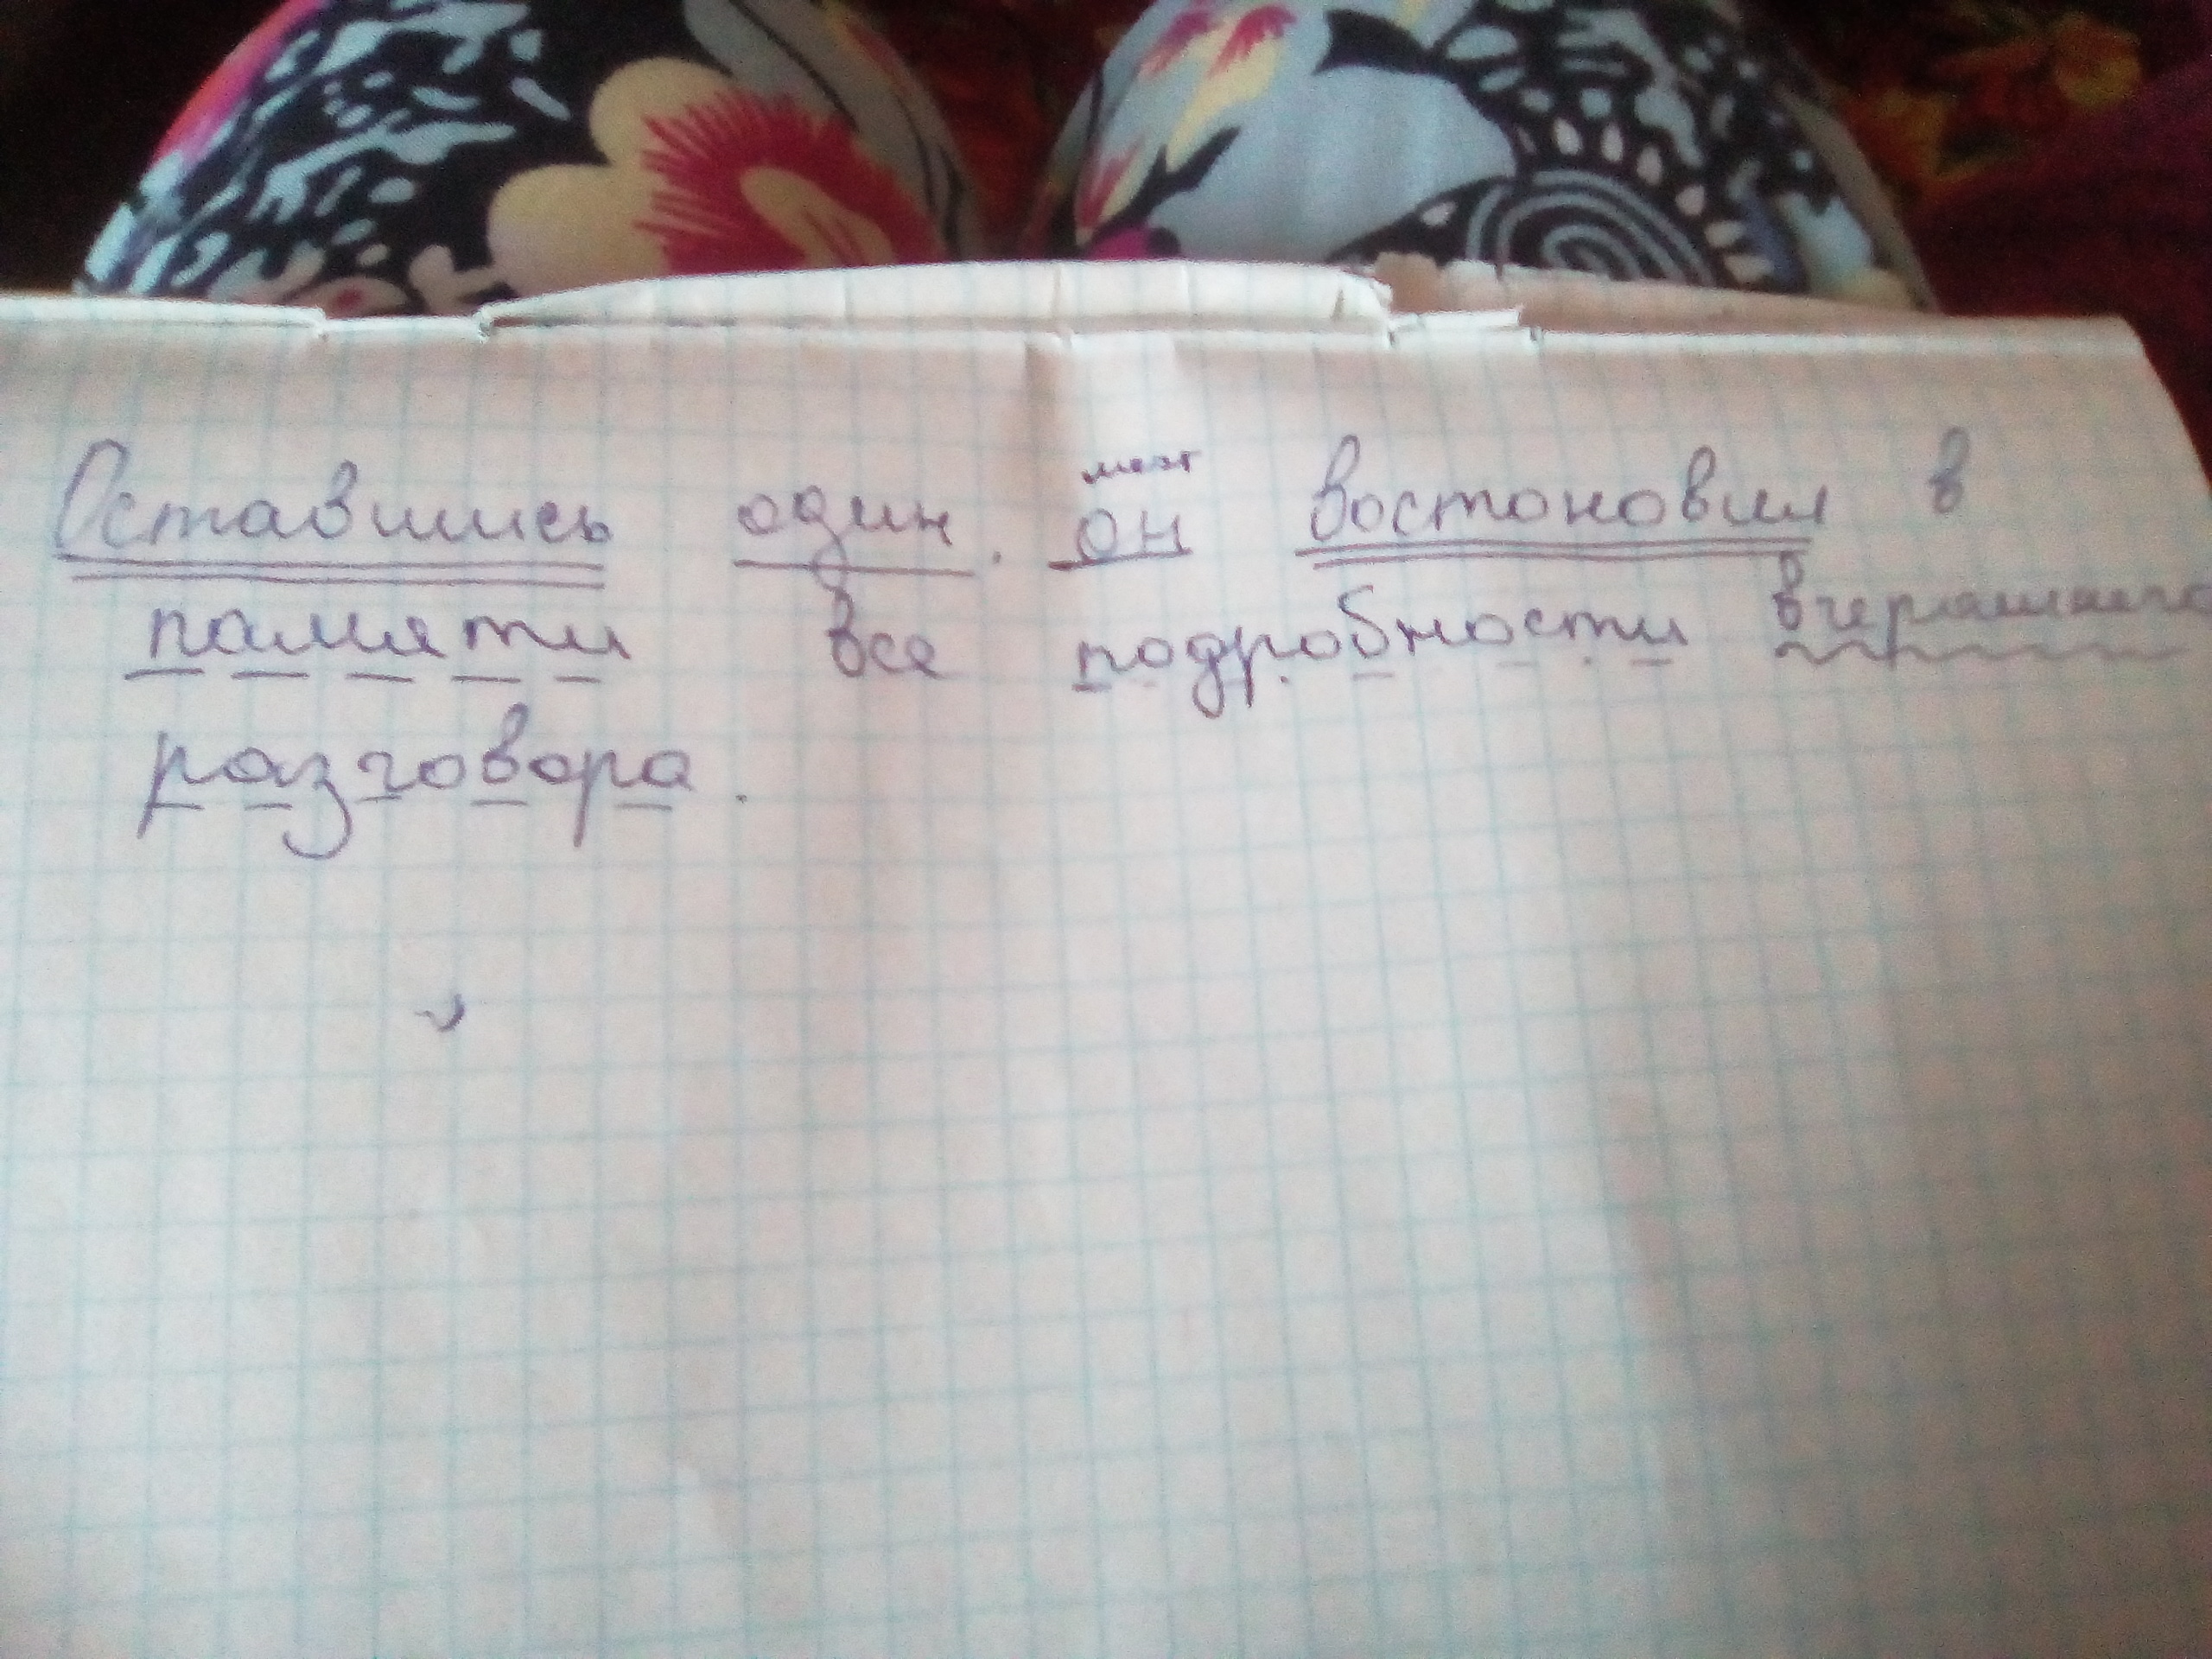 Оставшись один. он востоновил в
памяти все подробности вчерашнего
разговора.